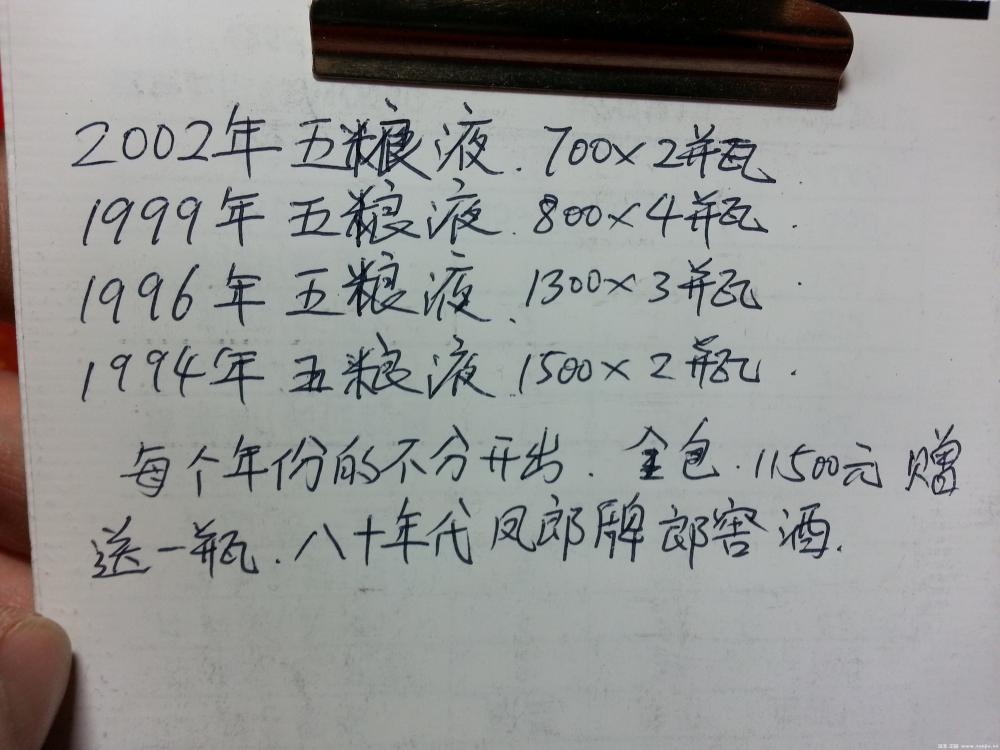 2002年 五粮液.700×2瓶
1999年 五粮液.800×4瓶.
1996年 五粮液.1300×3瓶.
1994年 五粮液.1500×2瓶.
每个年份的不分开出.全包.11500元 赠
送一瓶.八十年代凤郎牌郎窖酒.